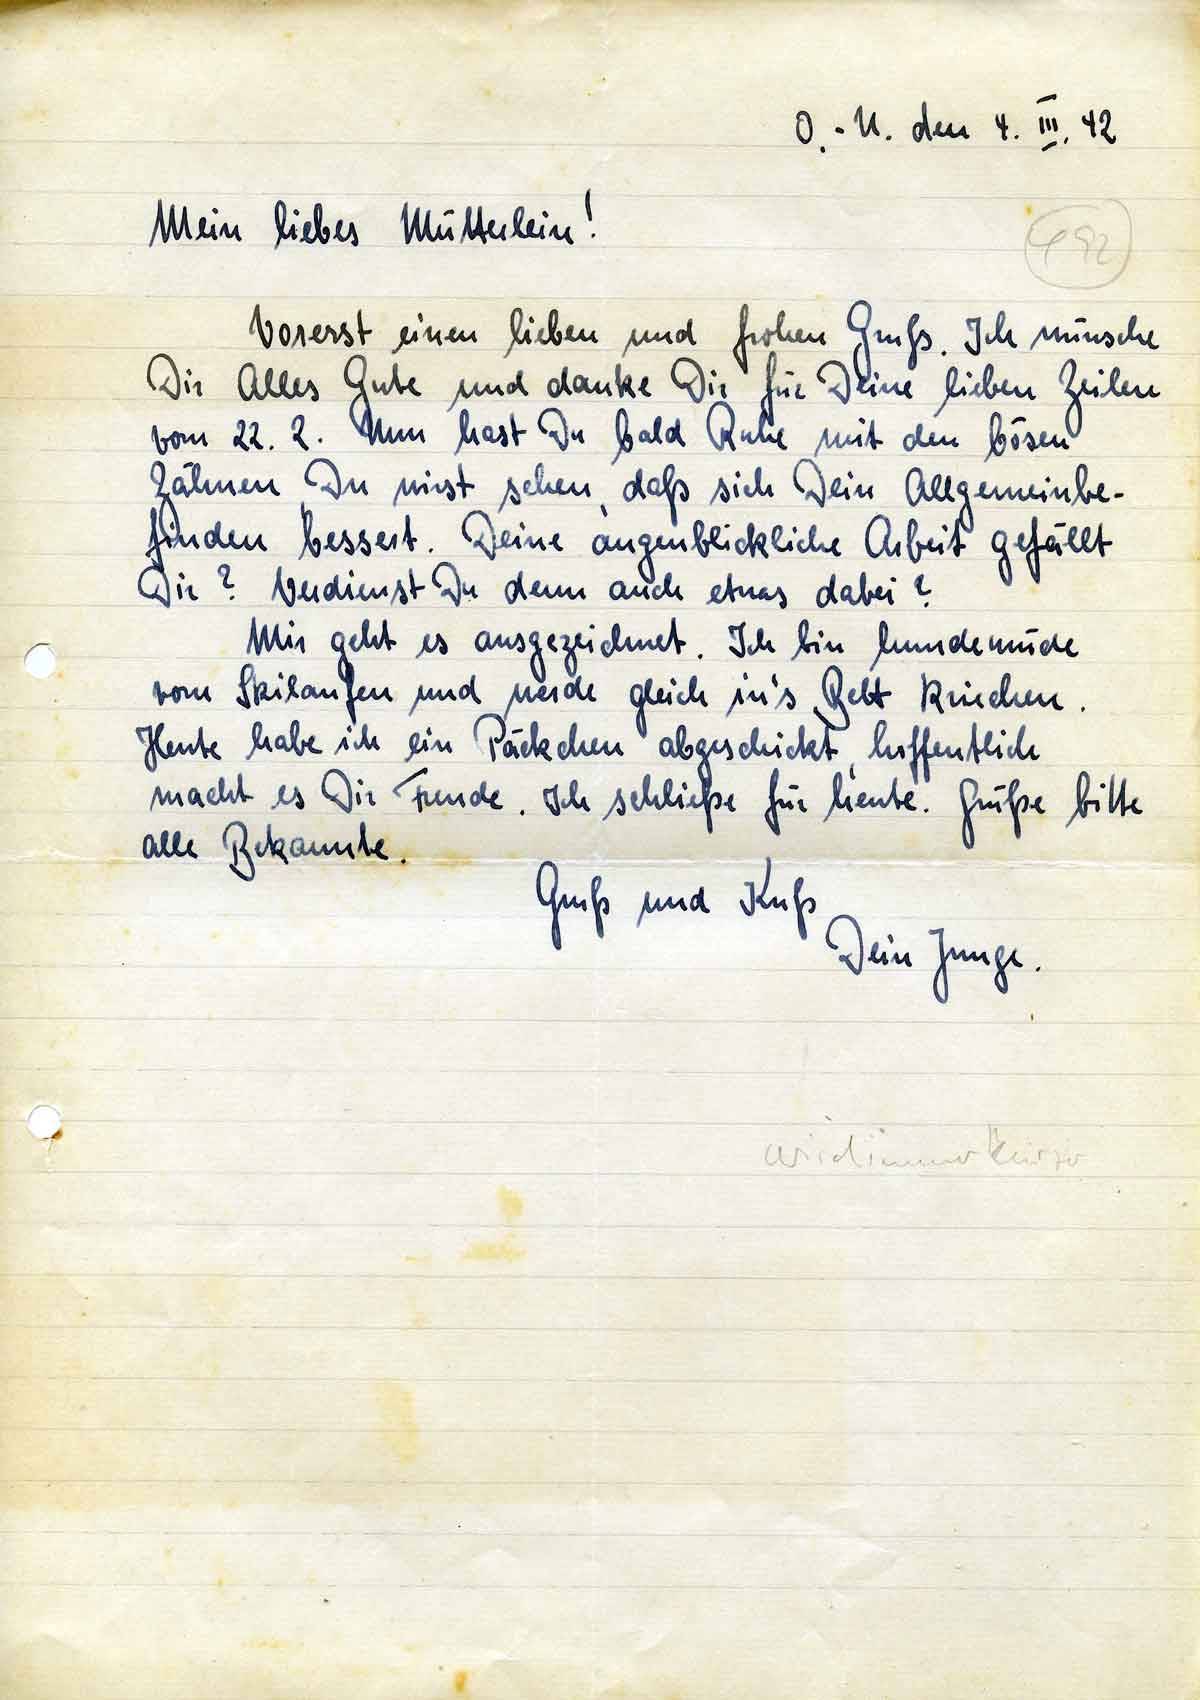 O.-U. den 4. III. 42
Mein liebes Mütterlein!
492
Vorerst einen lieben und frohen Gruß. Ich wünsche
Dir Alles Gute und danke Dir für Deine lieben Zeilen
vom 22. 2. Nun hast Du bald Ruhe mit den bösen
Zähnen, Du wirst sehen, daß sich Dein Allgemeinbe-
finden bessert. Deine augenblickliche Arbeit gefällt
Dir? Verdienst Du denn auch etwas dabei?
Mir geht es ausgezeichnet. Ich bin hundemüde
vom Skilaufen und werde gleich in's Bett kriechen.
Heute habe ich ein Päckchen abgeschickt, hoffentlich
macht es Dir Freude. Ich schließe für heute. Grüße bitte
alle Bekannte.
Gruß und Kuß
Dein Junge.